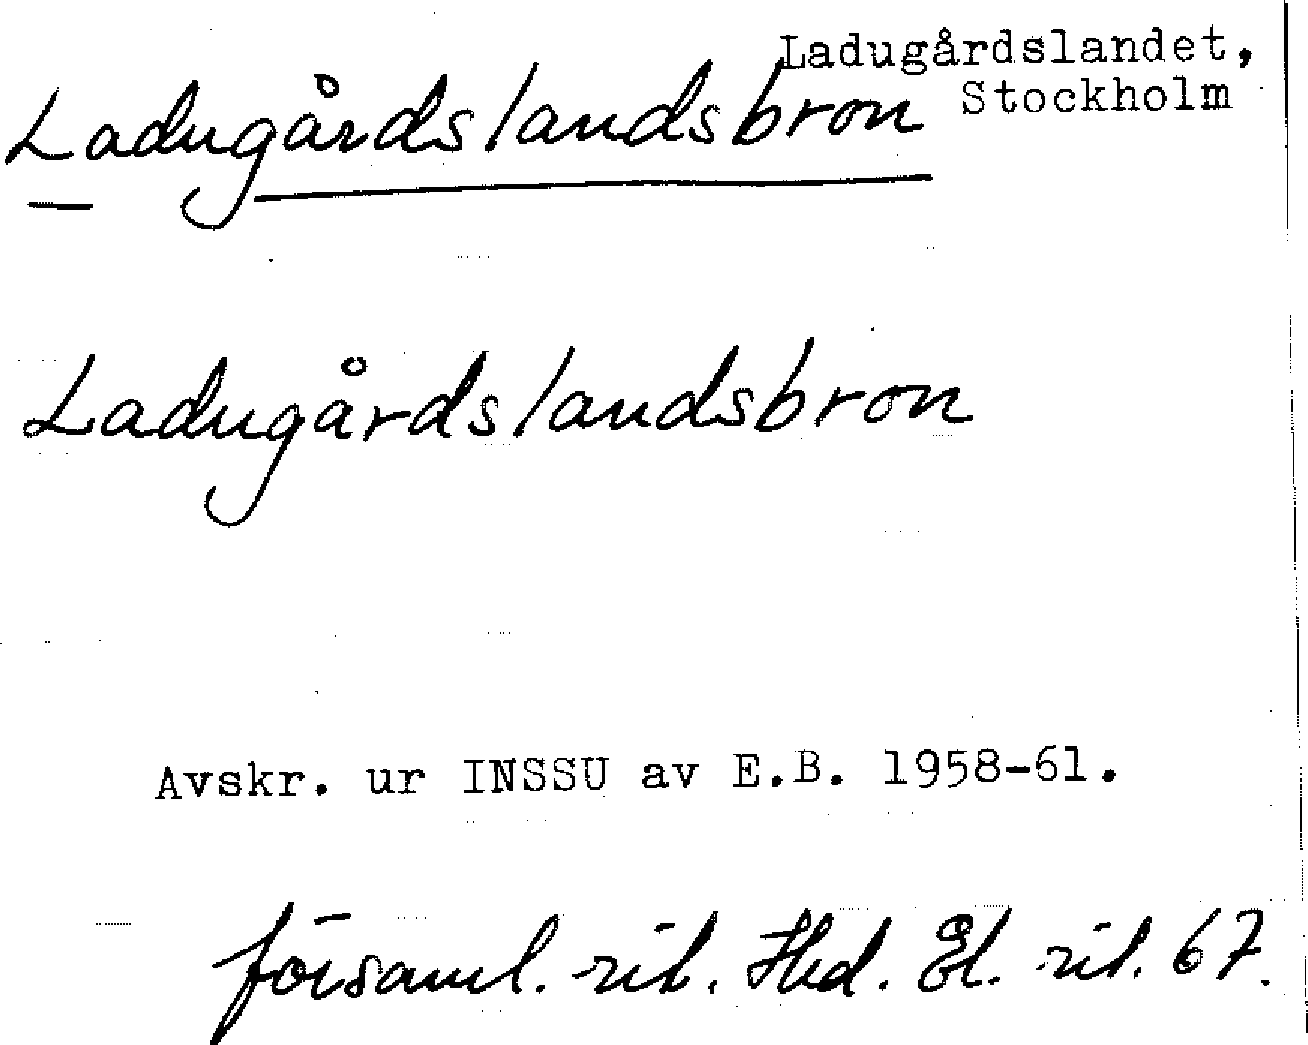 Ladugårdslandet,
Stockholm
Ladugårdslandsbron
Ladugårdslandsbron
Avskr. ur INSSU av E.B. 1958-61.
församl. 67.